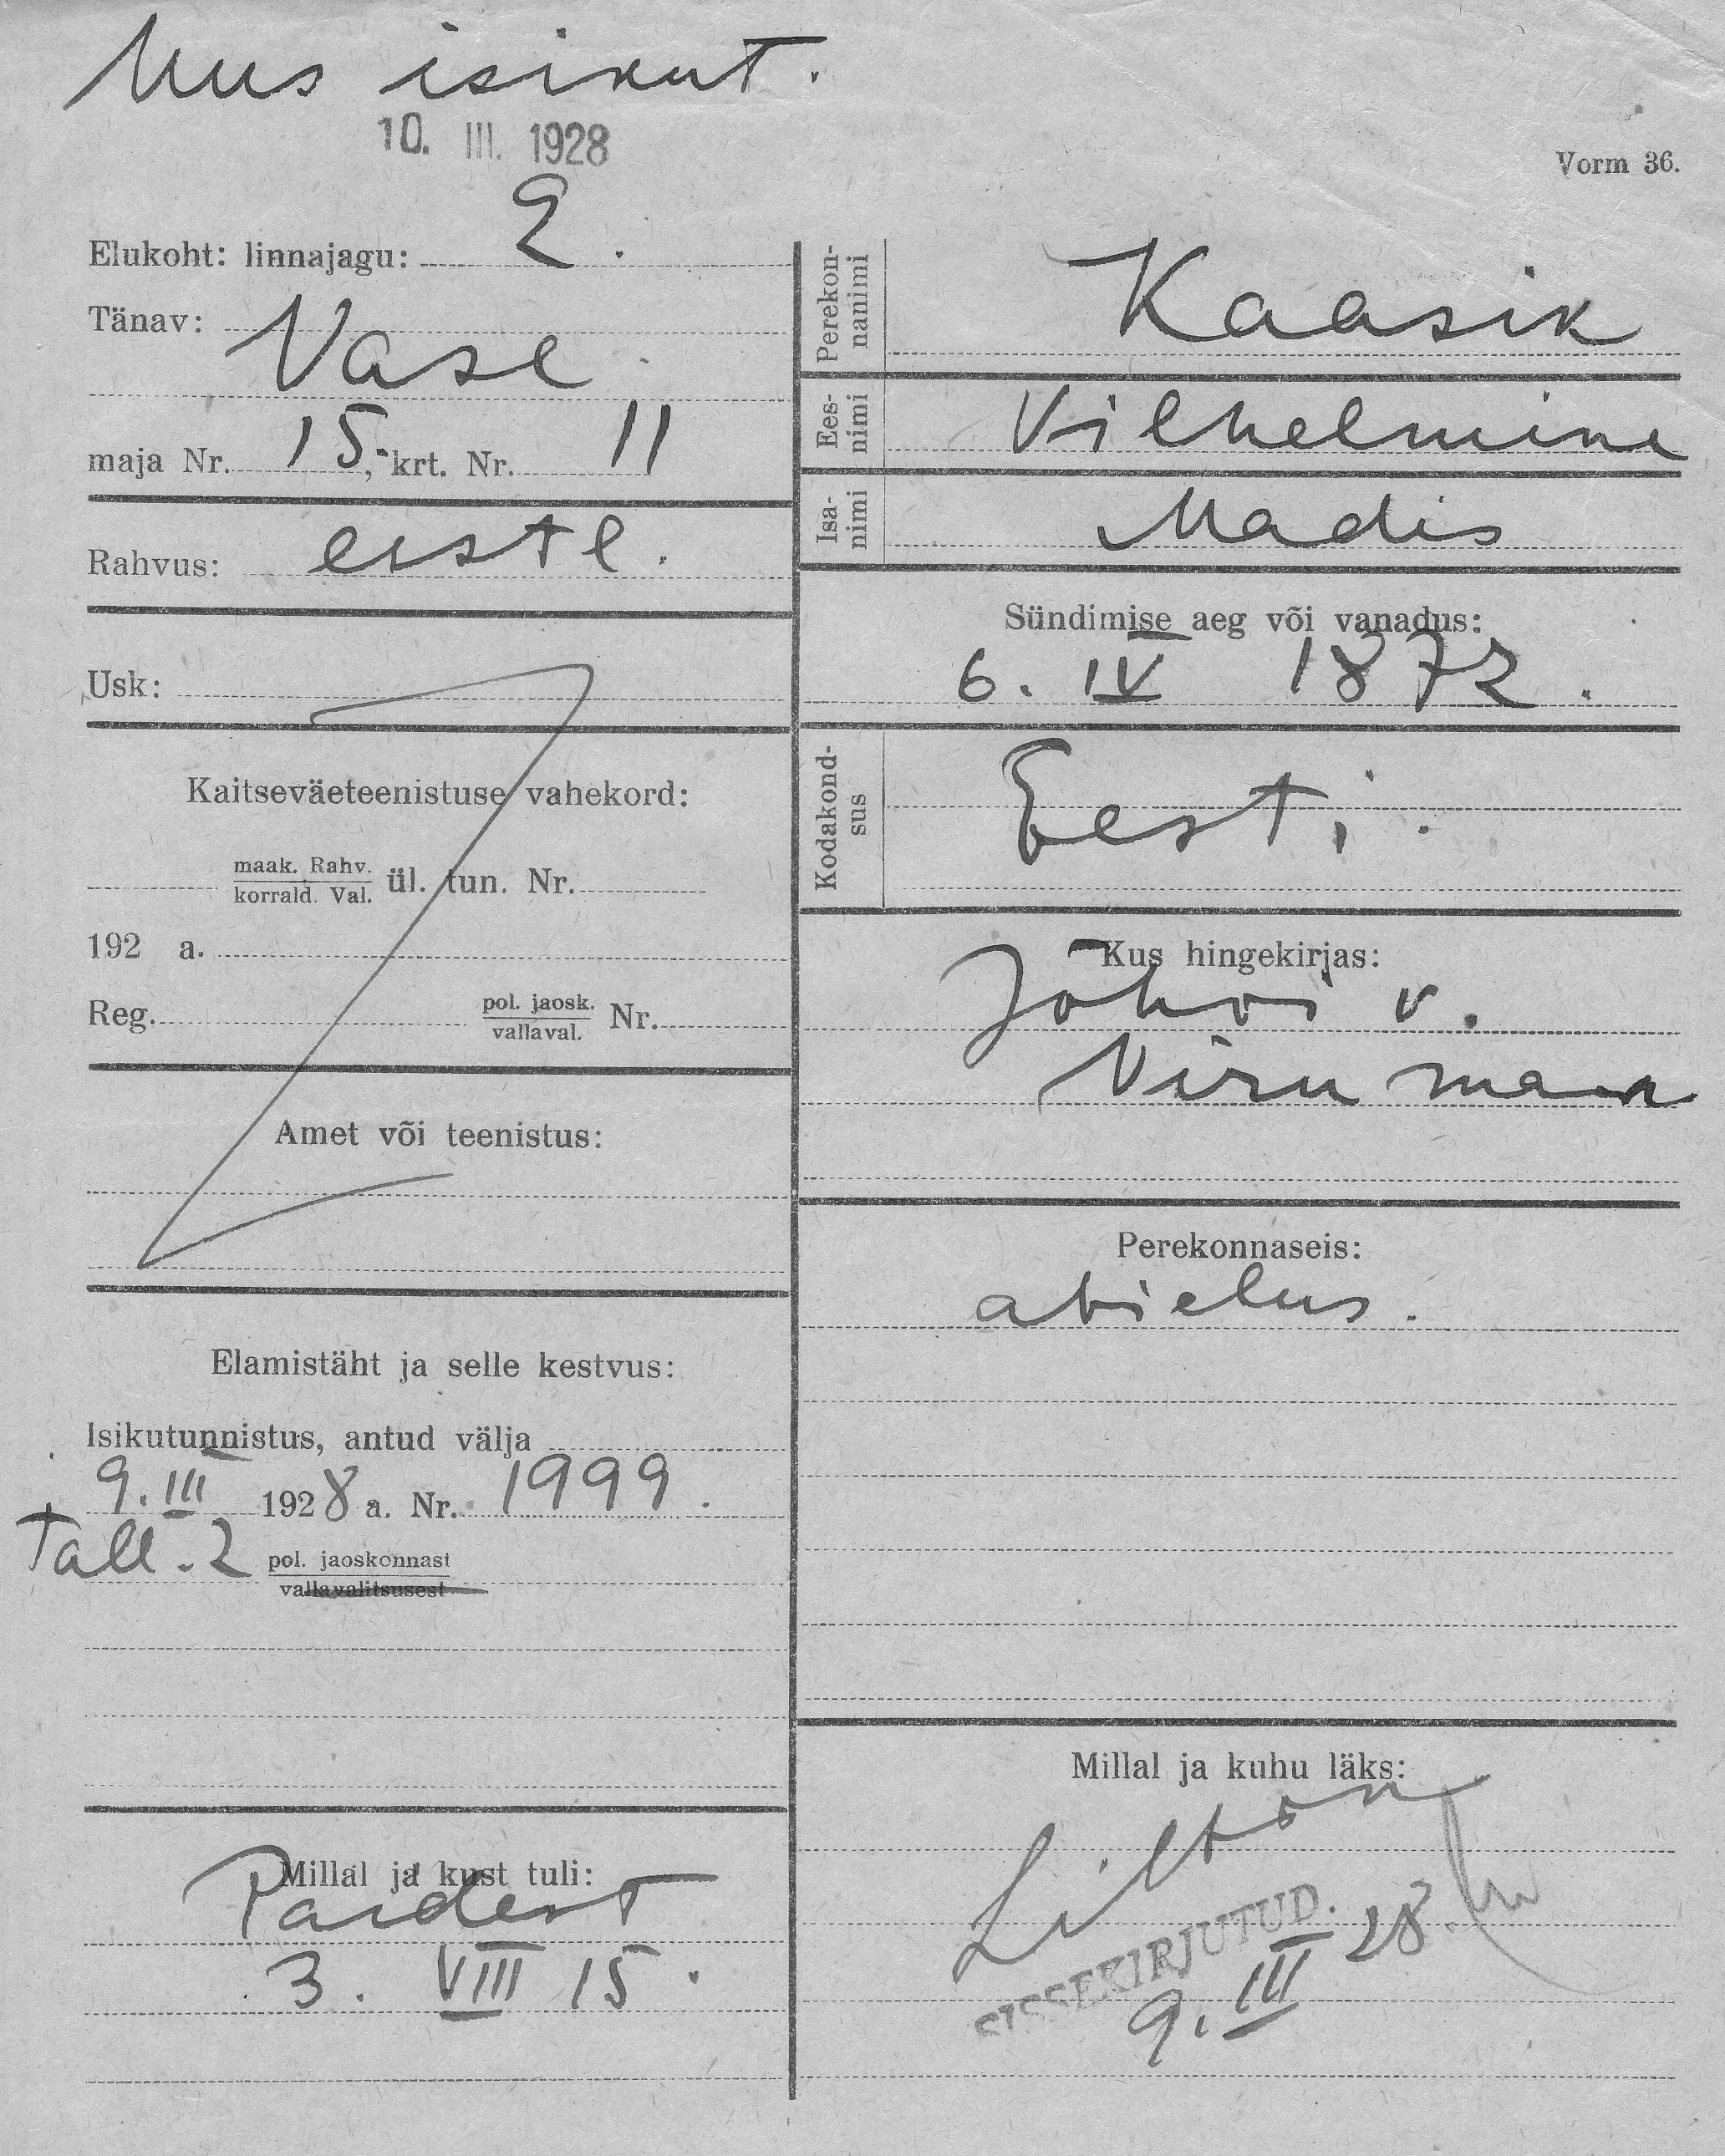 Uus isikut.
10. III. 1928
Vorm 36.
Elukoht: linnajagu: 2.
Tänav: Vase
maja Nr. 15, krt. Nr. 11
Rahvus: eestl.
Usk:
Kaitseväeteenistuse vahekord:
maak. Rahv.
korrald. Val. ül. tun. Nr.
192 a.
Reg. pol. jaosk.
vallaval. Nr.
Amet või teenistus:
Elamistäht ja selle kestvus:
Isikutunnistus, antud välja
9. III 1928 a. Nr. 1999.
Tall. 2 pol. jaoskonnast
vallavalitsusest
Millal ja kust tuli:
Paidest
3. VIII 15.
Perekon-
nanimi
Kaasik
Ees-
nimi
Vilhelmine
Isa-
nimi
Madis
Sündimise aeg või vanadus:
6. IV 1872.
Kodakond-
sus
Eesti.
Kus hingekirjas:
Jõhvi v.
Viru maa
Perekonnaseis:
abielus.
Millal ja kuhu läks:
SISSEKIRJUTUD.
9. III 28.